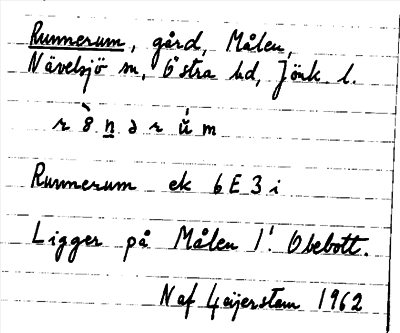 Runnerum, gård, Målen,
Nävelsjö sn, Östra hd, Jönk l.
Runnerum ek 6E3i
Ligger på Målen 1! Obebott.
N af Geijerstam 1962